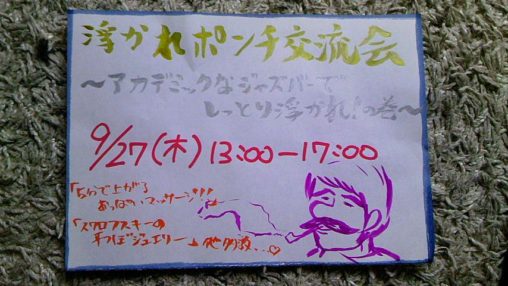 浮かれポンチ交流会
〜アカデミックなジャズバーで
しっとり浮かれ!の巻〜
9/27(木) 13:00-17:00
「5分で上がる
おっぱいマッサージ!!!
「スワロフスキーの
耳つぼジュエリー」他多数...♡